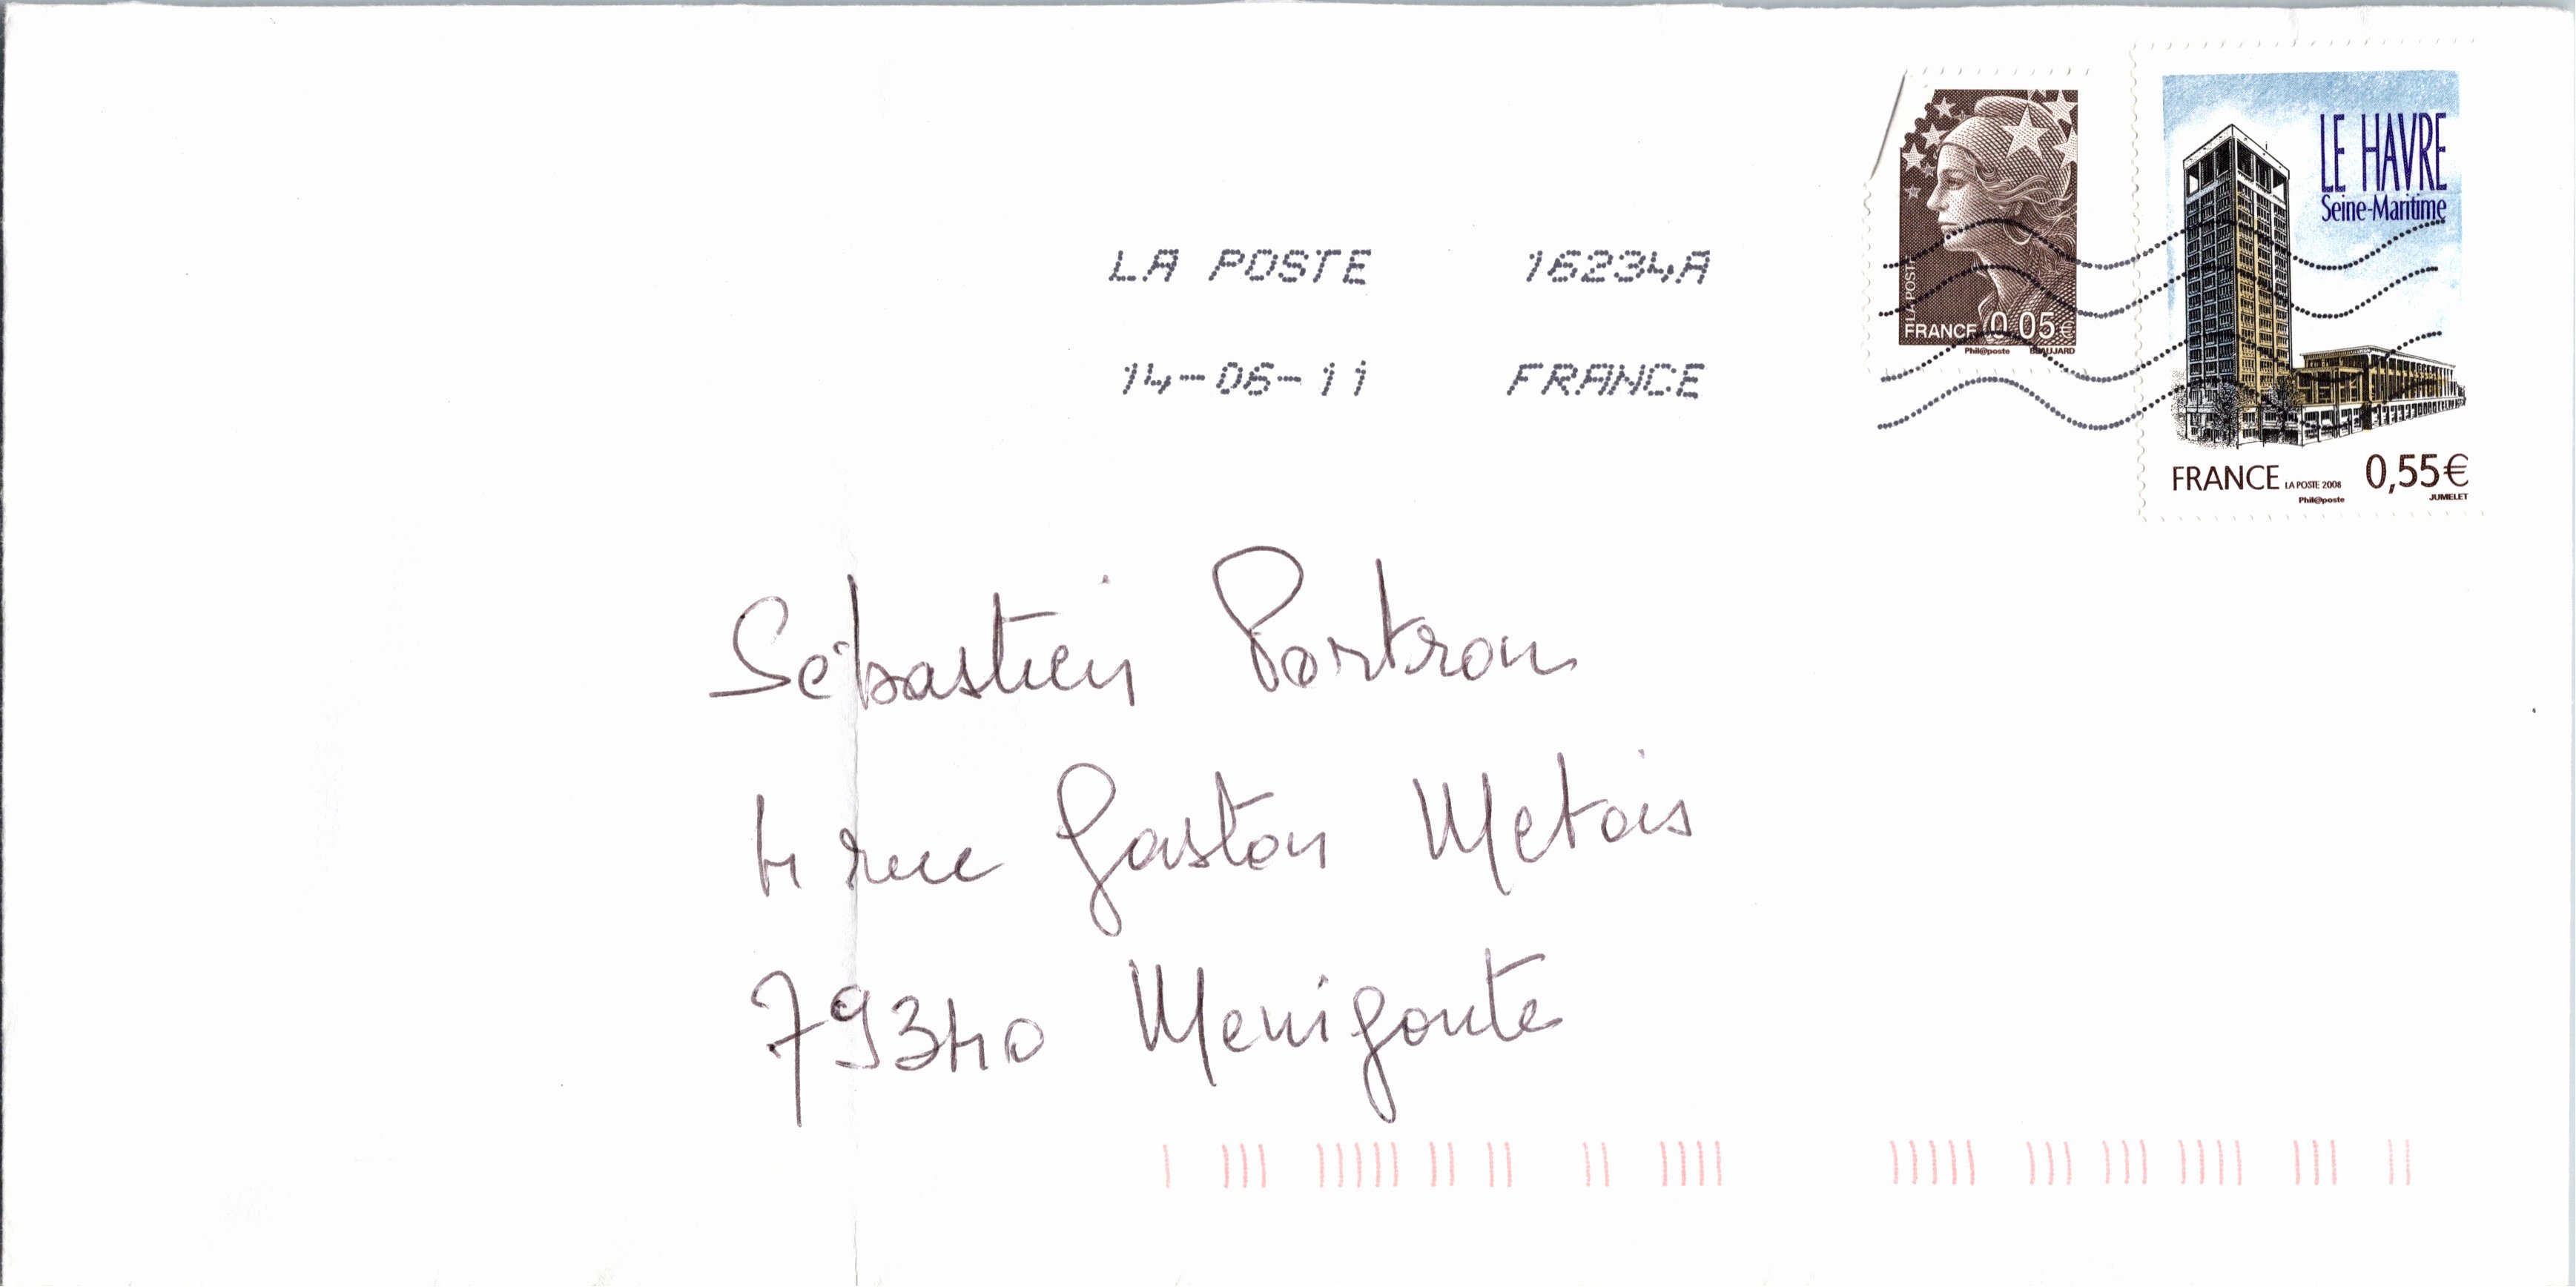 LA POSTE 16234A
14-06-11 FRANCE
LA POSTE
FRANCE 0,05€
Phil@poste BEAUJARD
LE HAVRE
Seine-Maritime
FRANCE LA POSTE 2008 0,55€
Phil@poste JUMELET
Sébastien Portron
4 rue Gaston Metois
79340 Menigoute